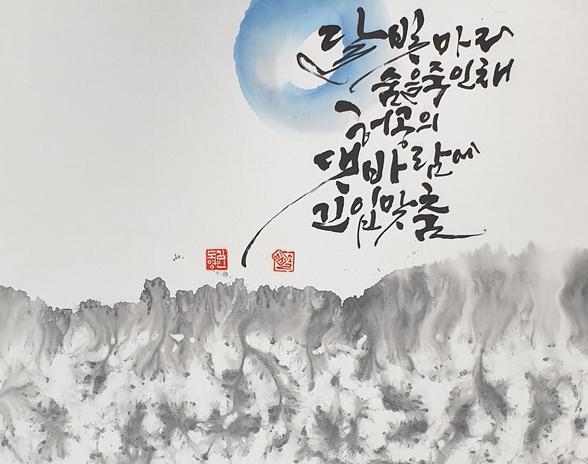 달빛마저
숨을죽인채
허공의
댓바람에
긴입맞춤